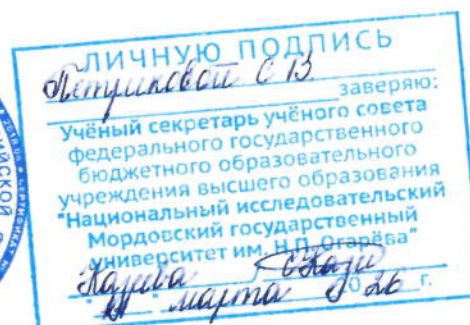 ЛИЧНУЮ ПОДПИСЬ
Петриковой С В.
заверяю:
Учёный секретарь учёного совета
федерального государственного
бюджетного образовательного
учреждения высшего образования
"Национальный исследовательский
Мордовский государственный
университет им. Н.П. Огарёва"
марта 2026 г.